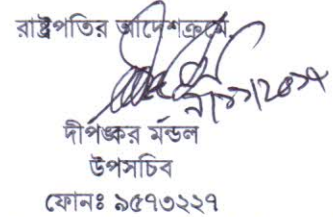 রাষ্ট্রপতির আদেশক্রমে,
দীপঙ্কর মন্ডল
উপসচিব
ফোনঃ ৯৫৭৩২২৭